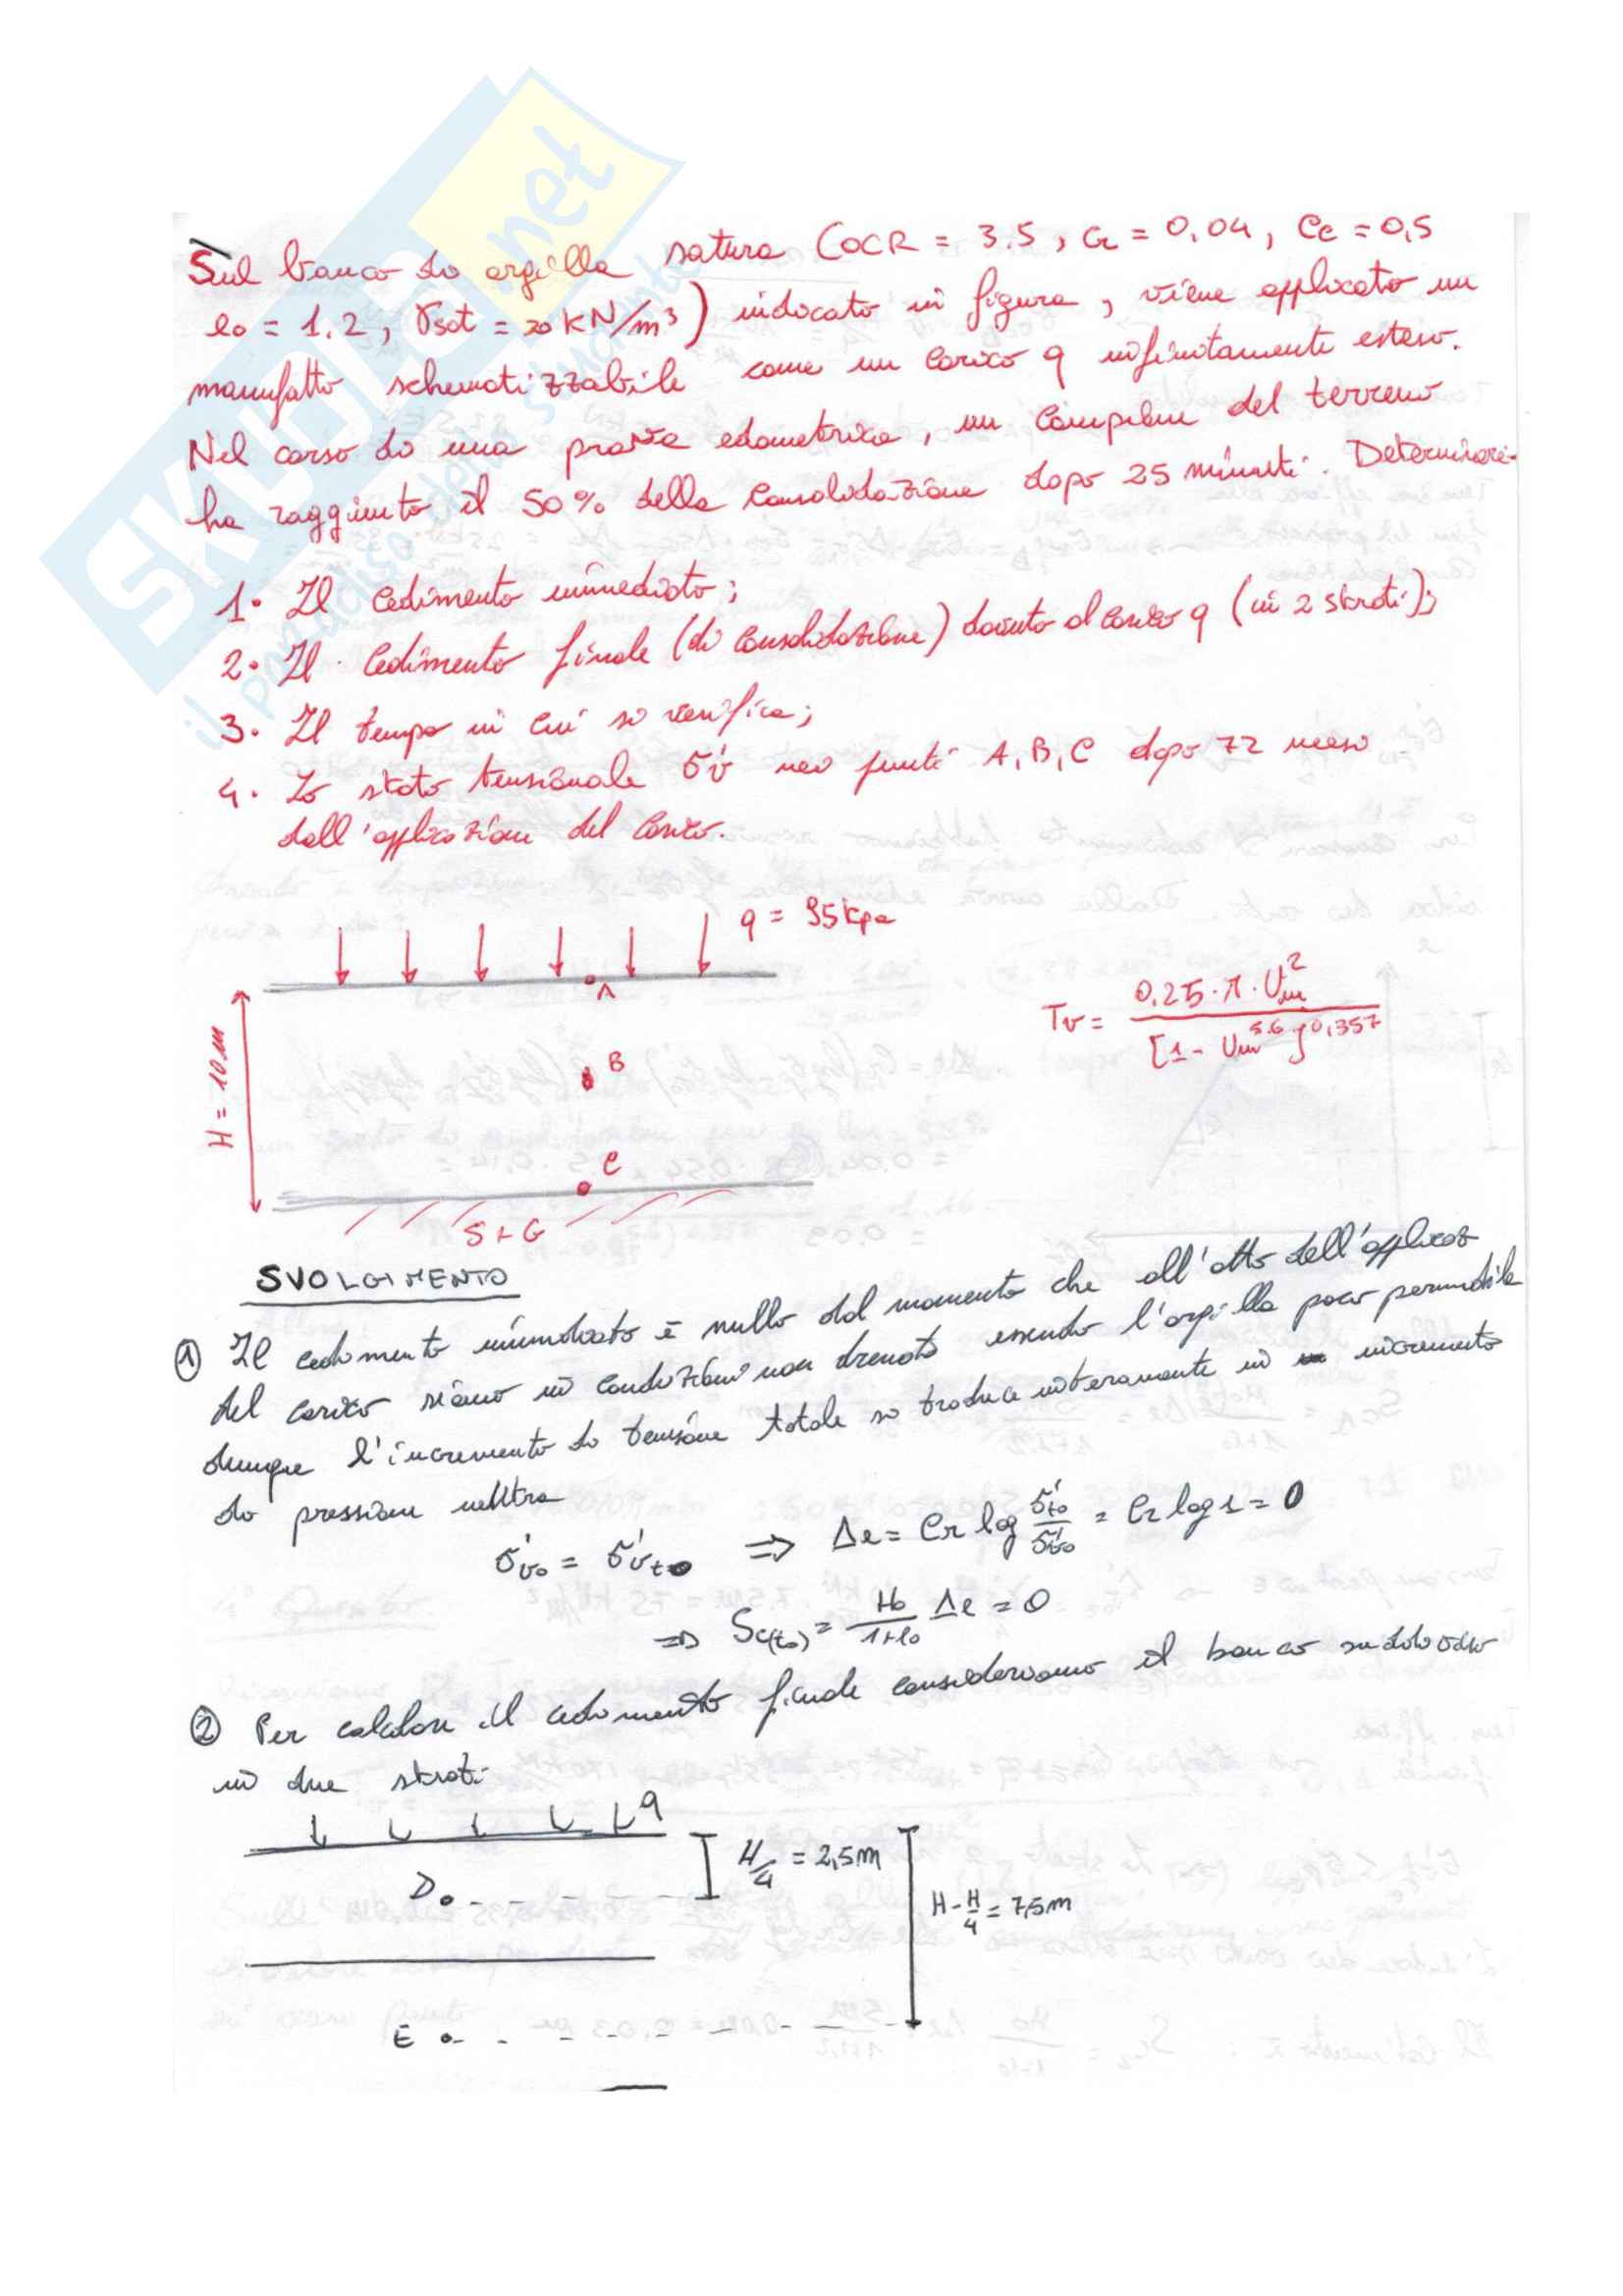 SKUOLA.net
il paradiso dello studente
Sul banco di argilla satura (OCR = 3.5, Cr = 0,04, Cc = 0,5
e0 = 1.2, γsat = 20 kN/m³) indicato in figura, viene applicato un
manufatto schematizzabile come un carico q infinitamente esteso.
Nel corso di una prova edometrica, un campione del terreno
ha raggiunto il 50% della consolidazione dopo 25 minuti. Determinare:
1. Il cedimento immediato;
2. Il cedimento finale (di consolidazione) dovuto al carico q (in 2 strati);
3. Il tempo in cui si verifica;
4. Lo stato tensionale σ'v nei punti A, B, C dopo 72 mesi
dall'applicazione del carico.
q = 95 kPa
A
B
H = 10 m
C
S+G
Tv = 0.25·π·Um² / [1 - Um^5.6]^0,357
SVOLGIMENTO
① Il cedimento immediato è nullo dal momento che all'atto dell'applicaz
del carico siamo in condizioni non drenate essendo l'argilla poco permeabile
dunque l'incremento di tensione totale si traduce interamente in incremento
di pressione neutra
σ'v0 = σ'vt=0 ⇒ Δe = Cr log σ't0/σ'v0 = Cr log 1 = 0
⇒ Sc(t0) = H0/1+e0 Δe = 0
② Per calcolare il cedimento finale consideriamo il banco suddiviso
in due strati
q
D
H/4 = 2,5m
H - H/4 = 7,5m
E